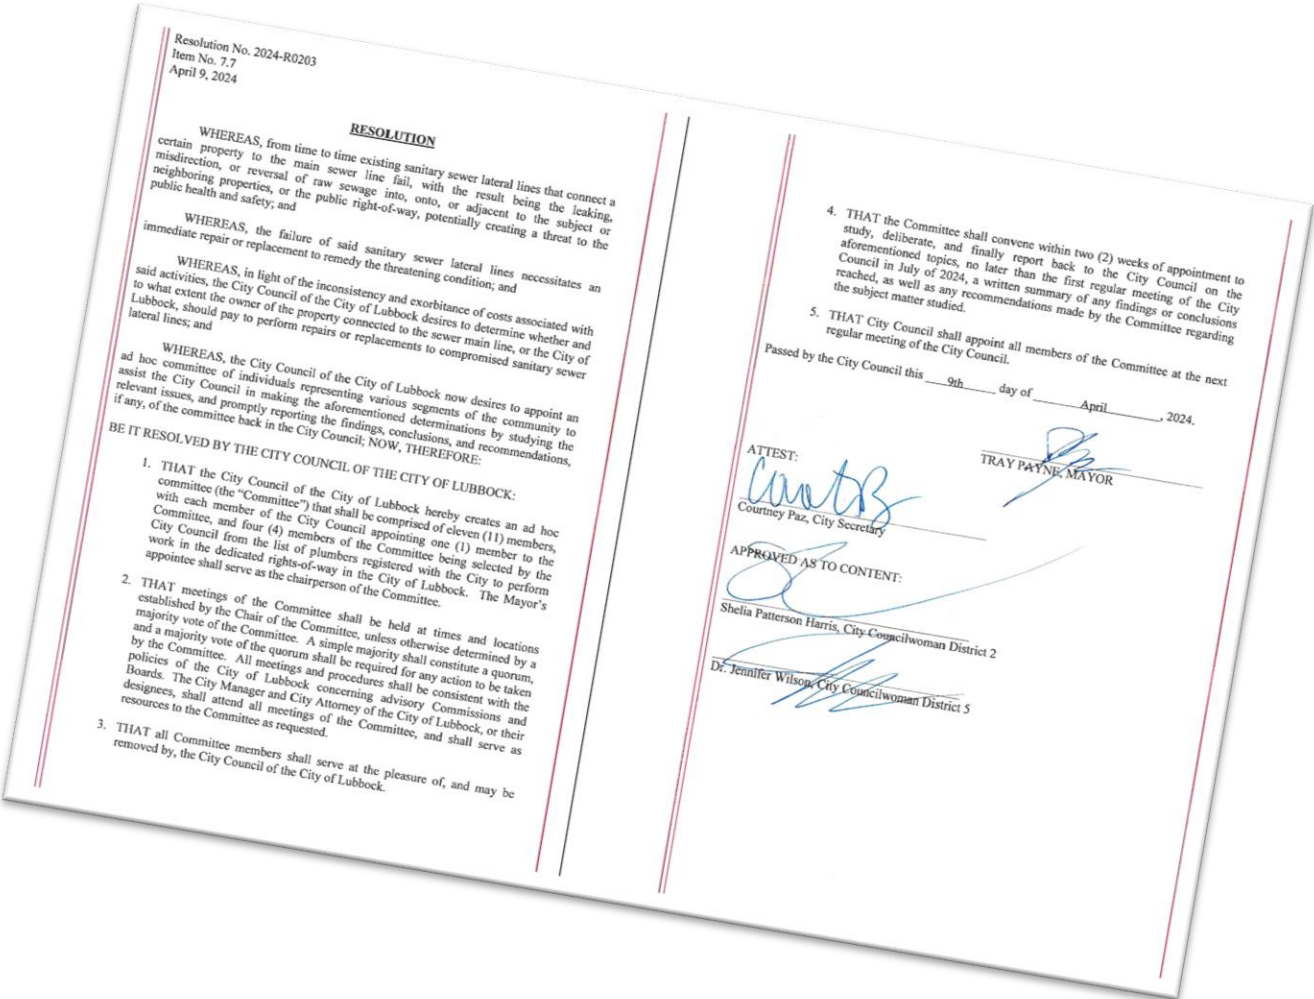 Resolution No. 2024-R0203
Item No. 7.7
April 9, 2024
RESOLUTION
WHEREAS, from time to time existing sanitary sewer lateral lines that connect a
certain property to the main sewer line fail, with the result being the leaking,
misdirection, or reversal of raw sewage into, onto, or adjacent to the subject or
neighboring properties, or the public right-of-way, potentially creating a threat to the
public health and safety; and
WHEREAS, the failure of said sanitary sewer lateral lines necessitates an
immediate repair or replacement to remedy the threatening condition; and
WHEREAS, in light of the inconsistency and exorbitance of costs associated with
said activities, the City Council of the City of Lubbock desires to determine whether and
to what extent the owner of the property connected to the sewer main line, or the City of
Lubbock, should pay to perform repairs or replacements to compromised sanitary sewer
lateral lines; and
WHEREAS, the City Council of the City of Lubbock now desires to appoint an
ad hoc committee of individuals representing various segments of the community to
assist the City Council in making the aforementioned determinations by studying the
relevant issues, and promptly reporting the findings, conclusions, and recommendations,
if any, of the committee back in the City Council; NOW, THEREFORE:
BE IT RESOLVED BY THE CITY COUNCIL OF THE CITY OF LUBBOCK:
1. THAT the City Council of the City of Lubbock hereby creates an ad hoc
committee (the “Committee”) that shall be comprised of eleven (11) members,
with each member of the City Council appointing one (1) member to the
Committee, and four (4) members of the Committee being selected by the
City Council from the list of plumbers registered with the City to perform
work in the dedicated rights-of-way in the City of Lubbock. The Mayor’s
appointee shall serve as the chairperson of the Committee.
2. THAT meetings of the Committee shall be held at times and locations
established by the Chair of the Committee, unless otherwise determined by a
majority vote of the Committee. A simple majority shall constitute a quorum,
and a majority vote of the quorum shall be required for any action to be taken
by the Committee. All meetings and procedures shall be consistent with the
policies of the City of Lubbock concerning advisory Commissions and
Boards. The City Manager and City Attorney of the City of Lubbock, or their
designees, shall attend all meetings of the Committee, and shall serve as
resources to the Committee as requested.
3. THAT all Committee members shall serve at the pleasure of, and may be
removed by, the City Council of the City of Lubbock.
4. THAT the Committee shall convene within two (2) weeks of appointment to
study, deliberate, and finally report back to the City Council on the
aforementioned topics, no later than the first regular meeting of the City
Council in July of 2024, a written summary of any findings or conclusions
reached, as well as any recommendations made by the Committee regarding
the subject matter studied.
5. THAT City Council shall appoint all members of the Committee at the next
regular meeting of the City Council.
Passed by the City Council this 9th day of April, 2024.
TRAY PAYNE, MAYOR
ATTEST:
Courtney Paz, City Secretary
APPROVED AS TO CONTENT:
Shelia Patterson Harris, City Councilwoman District 2
Dr. Jennifer Wilson, City Councilwoman District 5